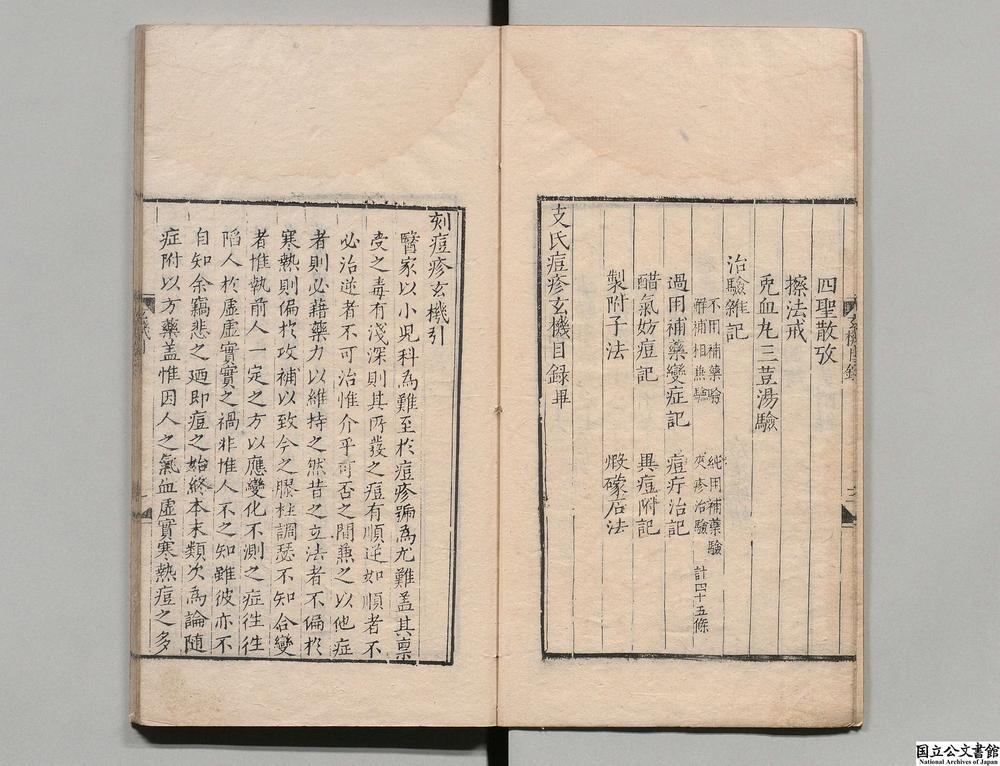 四聖散攷
擦法戒
兎血丸三荳湯驗
治驗雜記
不用補藥驗 純用補藥驗
解補相兼驗 夾疹治驗 計四十五條
過用補藥變症記 痘疔治記
醋氣妨痘記 異痘附記
製附子法 煅礞石法
支氏痘疹玄機目録畢
刻痘疹玄機引
醫家以小児科為難至於痘疹諞為尤難盖其禀
受之毒有淺深則其所發之痘有順逆如順者不
必治逆者不可治惟介乎可否之間兼之以他症
者則必藉藥力以維持之然昔之立法者不偏於
寒熱則偏於攻補以致今之膠柱調瑟不知合變
者惟執前人一定之方以應變化不測之症徃徃
陷人於虛虛實實之禍非惟人不之知雖彼亦不
自知余竊悲之廼即痘之始終本末類次為論隨
症附以方藥盖惟因人之氣血虛實寒熱痘之多
国立公文書館
National Archives of Japan